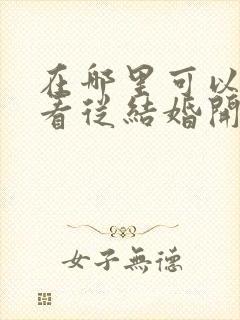 在哪里可以
看從結婚開
女子無德